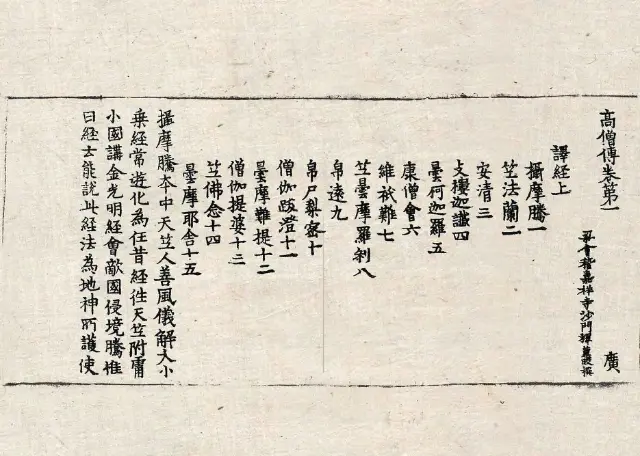 高僧傳卷第一
廣
梁會稽嘉祥寺沙門釋慧皎撰
譯經上
攝摩騰一
竺法蘭二
安清三
支樓迦讖四
曇柯迦羅五
康僧會六
維祇難七
竺曇摩羅剎八
帛遠九
帛尸梨密十
僧伽跋澄十一
曇摩難提十二
僧伽提婆十三
竺佛念十四
曇摩耶舍十五
攝摩騰本中天竺人善風儀解大小
乘經常遊化為任昔經往天竺附庸
小國講金光明經會敵國侵境騰惟
曰經云能說此經法為地神所護使